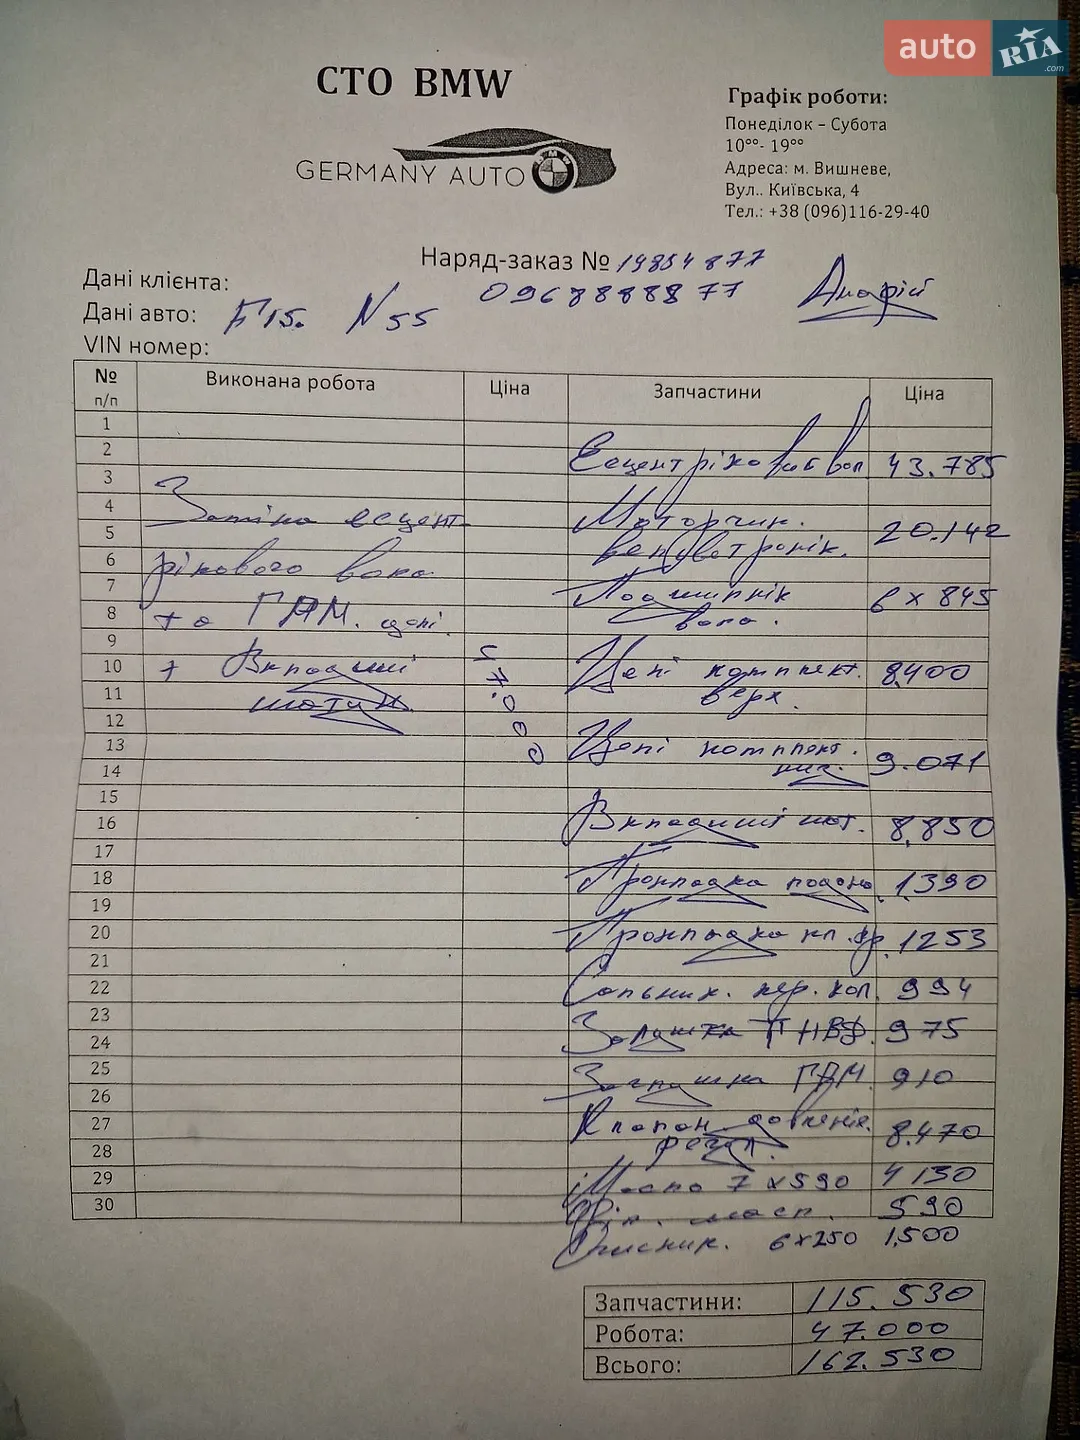 auto RIA.com
СТО BMW
GERMANY AUTO
BMW
Графік роботи:
Понеділок – Субота
10°°- 19°°
Адреса: м. Вишневе,
Вул.. Київська, 4
Тел.: +38 (096)116-29-40
Наряд-заказ № 19854877
Дані клієнта: 0968888877
Дані авто: F15. N55
VIN номер:
№ п/п Виконана робота Ціна Запчастини Ціна
1
2 Ецентріковий вал 43.785
3
4 Заміна ецент Моторчик. 20.142
5 венуветронік.
6 рікового вала
7 Подшипнік 6 x 845
8 та ГРМ. цепі. вала.
9
10 + Вкладиші 47.000 Цепі комплект. 8,400
11 шатун. верх.
12
13 Цепі комплект. 9.071
14 ниж.
15
16 Вкладиші шат. 8,850
17
18 Прокладка поддона 1,390
19
20 Прокладка кл. кр. 1253
21
22 Сальник. пер. кол. 994
23
24 Заглушка ТНВД. 975
25
26 Заглушка ГРМ. 910
27 Клапан. давленія. 8.470
28 регул.
29 Масло 7 x 590 4 130
30 Філ. масл. 590
Очисник. 6x250 1,500
Запчастини: 115.530
Робота: 47.000
Всього: 162.530